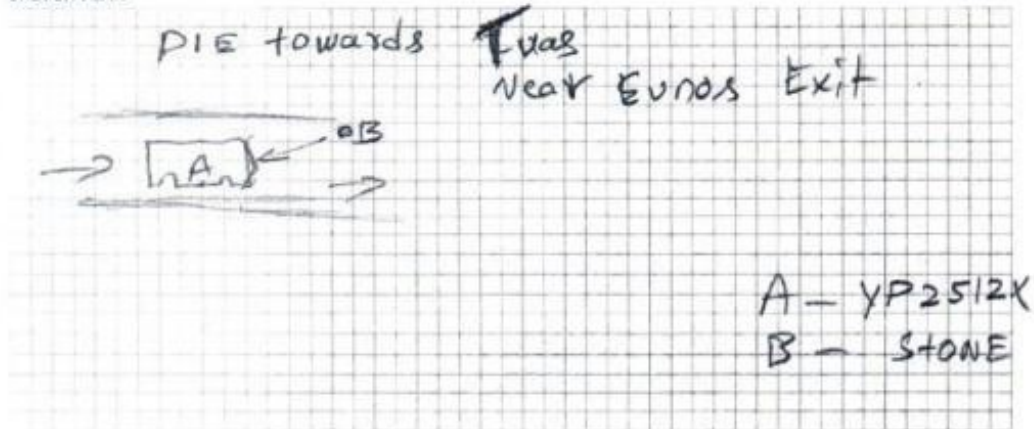 PIE towards Tuas
Near Eunos Exit
B
A
A - YP2512X
B - STONE